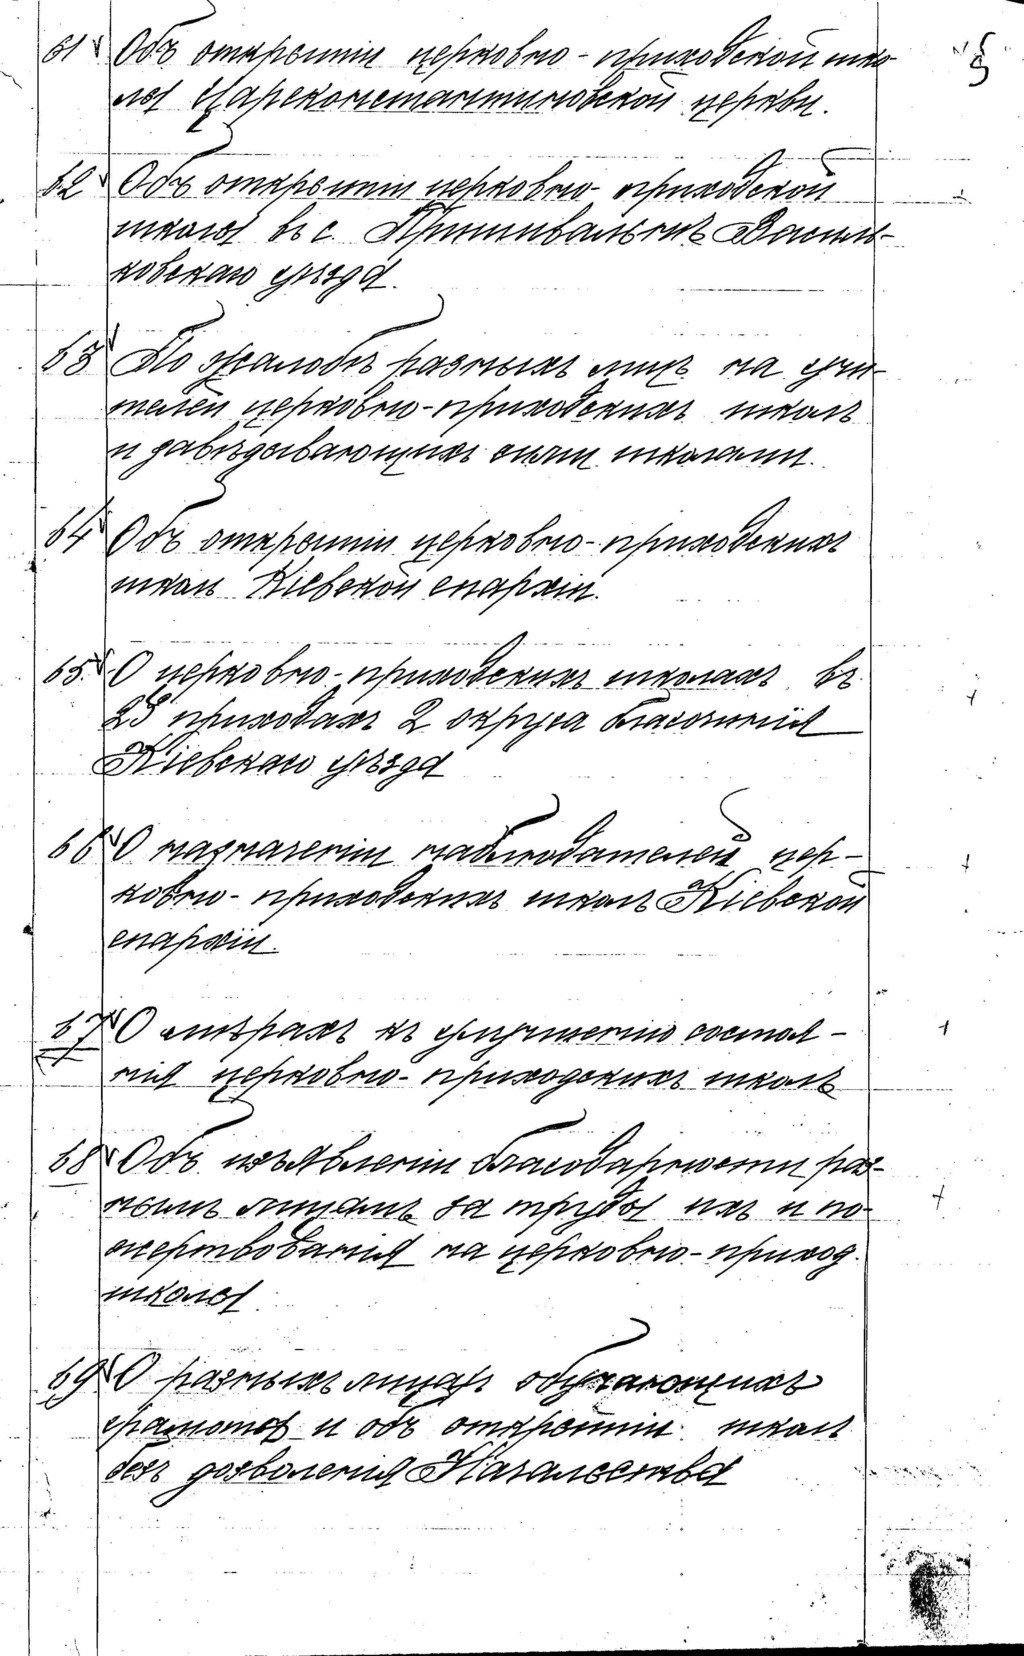 61 Объ открытіи церковно-приходской шко-
лы Царекон​стантиновской церкви.
62 Объ открытіи церковно-приходской
школы въ с. Пришивальнѣ Василь-
ковскаго уѣзда.
63 По жалобѣ разныхъ лицъ на учи-
телей церковно-приходскихъ школъ
и завѣдывающихъ сими школами.
64 Объ открытіи церковно-приходскихъ
школъ Кіевской епархіи.
65. О церковно-приходскихъ школахъ въ
23 приходахъ 2 округа благочинія
Кіевскаго уѣзда
66 О назначеніи наблюдателей цер-
ковно-приходскихъ школъ Кіевской
епархіи.
67 О мѣрахъ къ улучшенію состоя-
нія церковно-приходскихъ школъ
68 Объ изъявленіи благодарности раз-
нымъ лицамъ за труды ихъ и по-
жертвованія на церковно-приход.
школы
69 О разныхъ лицахъ обучающихъ
грамотѣ и объ открытіи школъ
безъ дозволенія Начальства